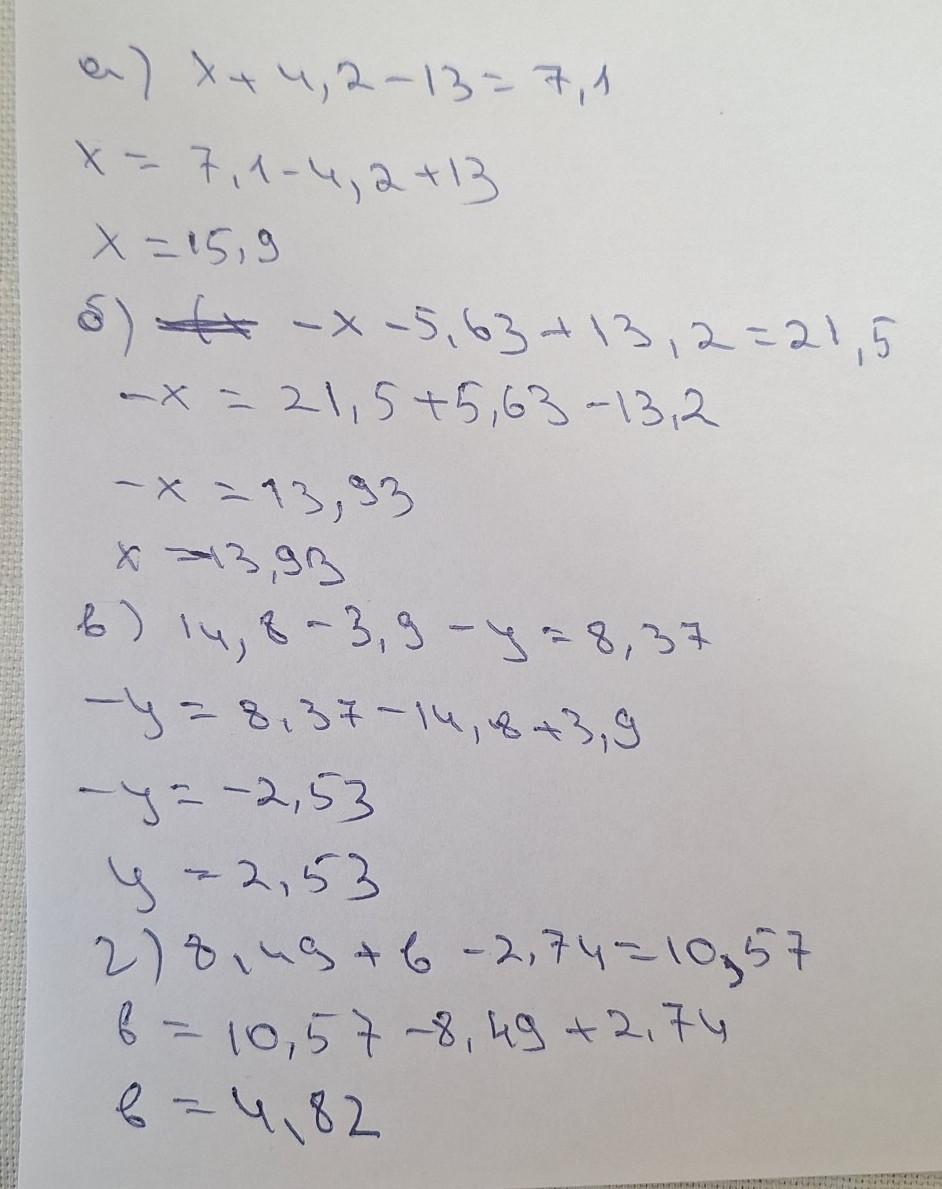 а) x + 4,2 - 13 = 7,1
x = 7,1 - 4,2 + 13
x = 15,9
б) -x - 5,63 + 13,2 = 21,5
-x = 21,5 + 5,63 - 13,2
-x = 13,93
x = -13,93
в) 14,8 - 3,9 - y = 8,37
-y = 8,37 - 14,8 + 3,9
-y = -2,53
y = 2,53
г) 8,49 + в - 2,74 = 10,57
в = 10,57 - 8,49 + 2,74
в = 4,82